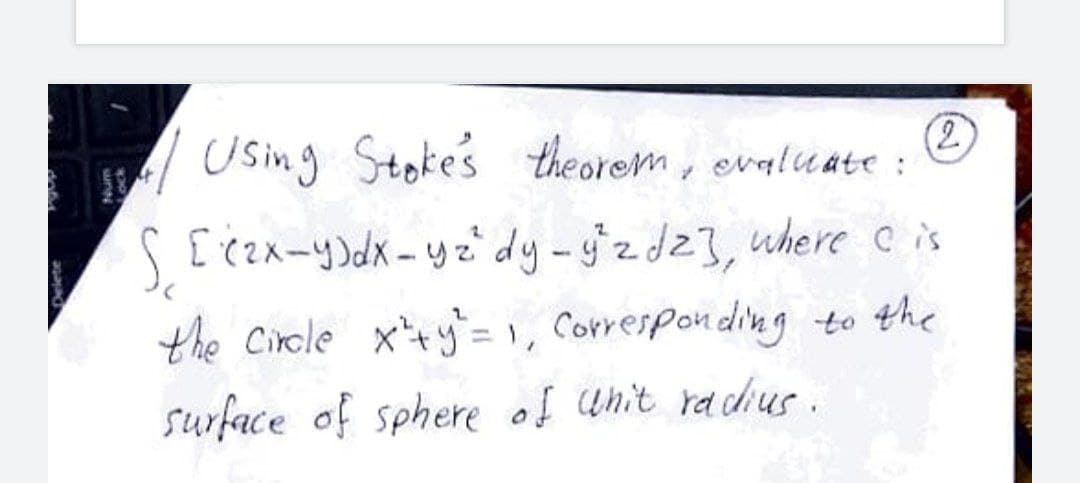 ②
4/ Using Stoke's theorem, evaluate :
∫c [(2x-y)dx - yz² dy - y²z dz], where c is
the Circle x²+y²=1, Corresponding to the
surface of sphere of unit radius.
Num
Lock
/
PgUp
Delete